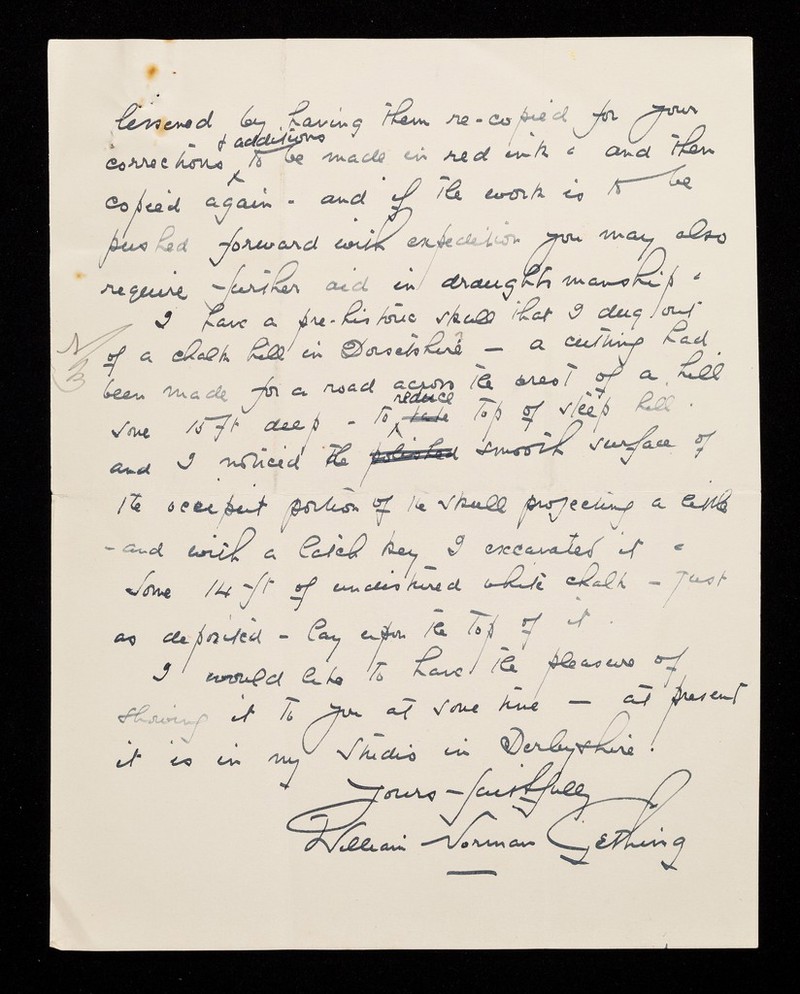 lessened by having them re-copied for your
corrections & additions to be made in red ink. and then
copied again - and if the work is to be
pushed forward with expedition you may also
require further aid in draughtsmanship.
I have a pre-historic skull that I dug out
NB
of a chalk hill in Dorsetshire - a cutting had
been made for a road across the crest of a hill
some 15 ft deep - to reduce top of steep hill.
and I noticed the polished smooth surface of
the occiput portion of the skull projecting a little
- and with a latch key I excavated it.
Some 14 ft of undisturbed white chalk - just
as deposited - lay upon the top of it.
I would like to have the pleasure of
showing it to you at some time - at present
it is in my studio in Derbyshire.
Yours faithfully
William Norman Gething